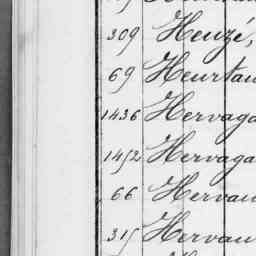 309 Heuzé,
69 Heurtau
1436 Hervaga
1452 Hervaga
66 Hervau
315 Hervau